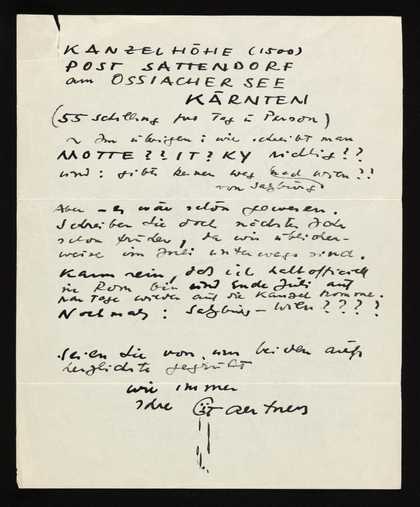 KANZELHÖHE (1500)
POST SATTENDORF
am OSSIACHER SEE
KÄRNTEN
(55 Schilling pro Tag u Person)
Im übrigen: wie schreibt man
MOTTE??IT?KY richtig??
und: gibts keinen weg nach wien??
von Salzburg
Aber – es wär schön gewesen.
Schreiben Sie doch nächstes Jahr
schon früher, da wir üblicher-
weise im Juli unterwegs sind.
Kann sein, daß ich halbofficiell
in Rom bin und Ende Juli auf
paar Tage wieder auf die Kanzel komme.
Nochmals: Salzburg – wien????
Seien Sie von uns beiden aufs
herzlichste gegrüßt
wie immer
Ihre Gütersloh